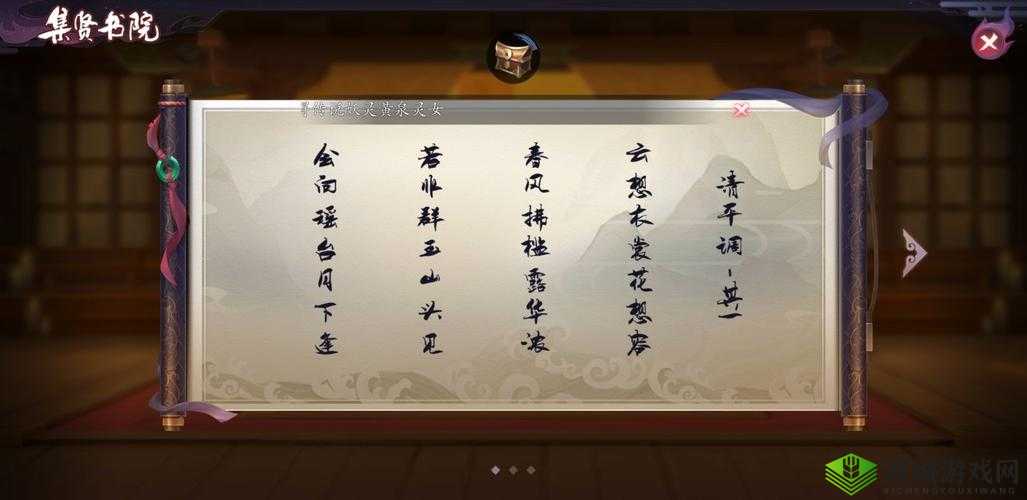 集贤书院
传说妖灵黄泉灵女
清平调-其一
云想衣裳花想容
春风拂槛露华浓
若非群玉山头见
会向瑶台月下逢
游戏网